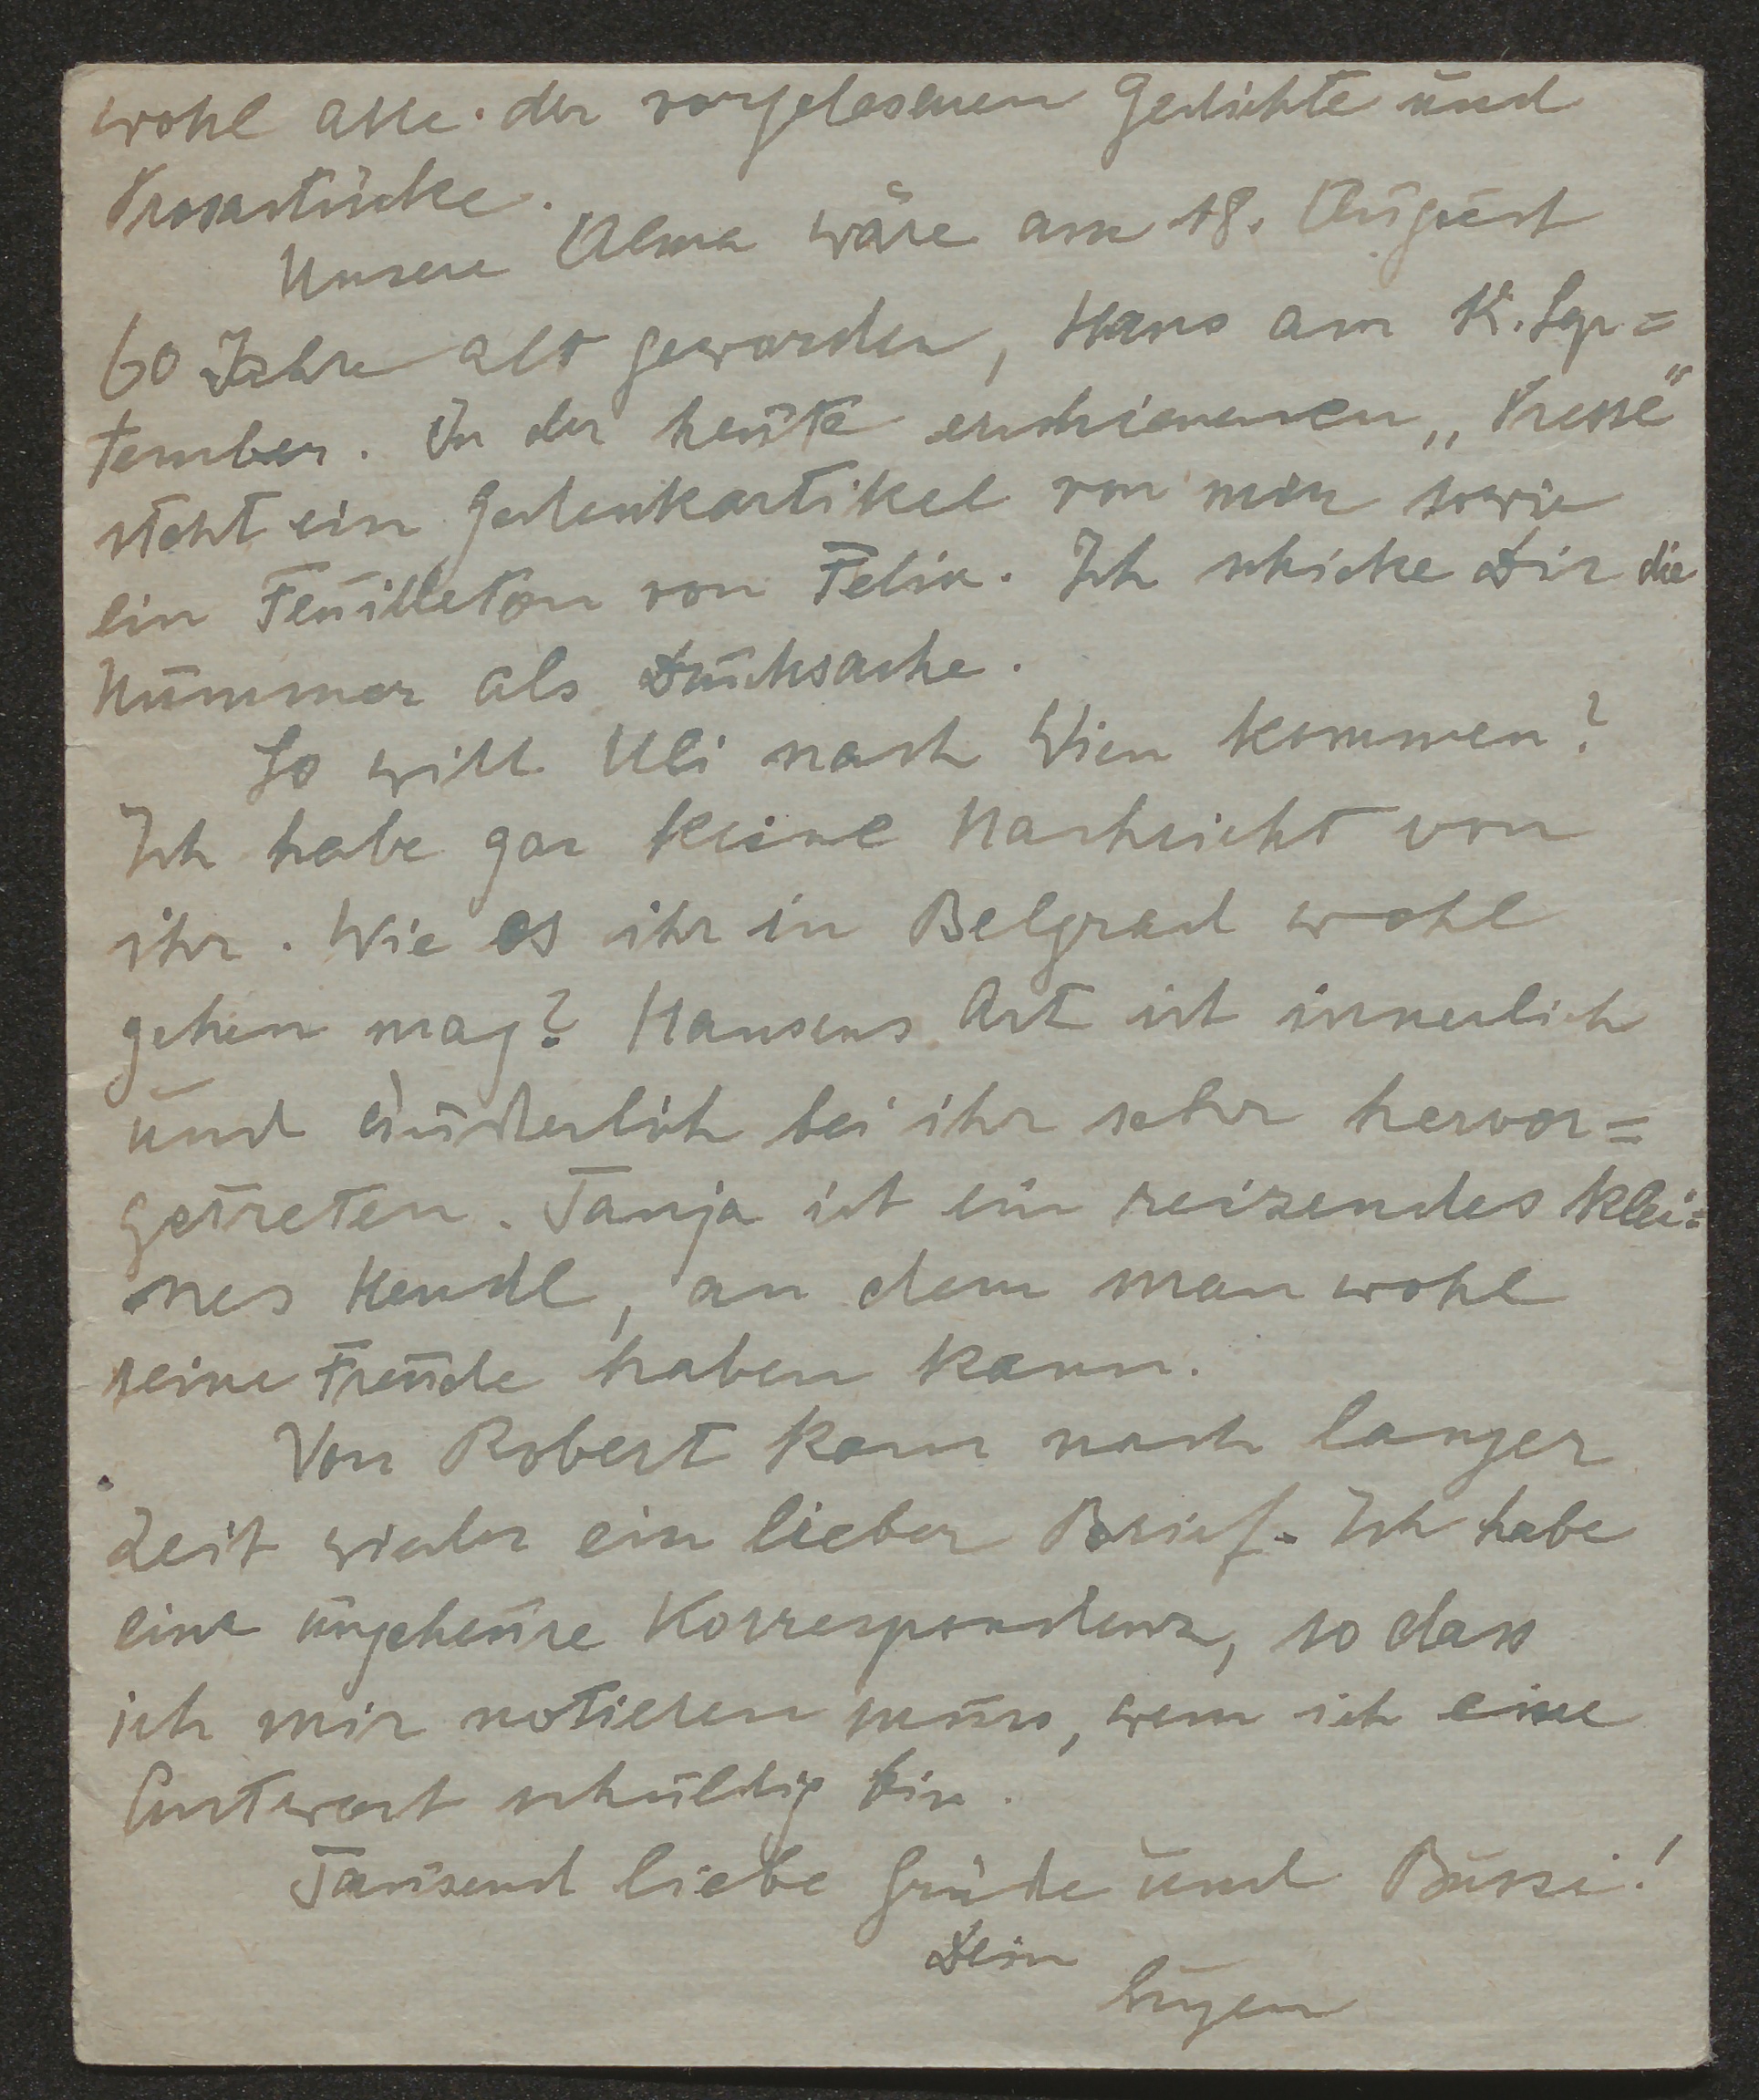 wohl alle der vorgelesenen Gedichte und
Prosastücke.
Unsere Alma wäre am 18. August
60 Jahre alt geworden, Hans am Sep=
tember. In der heute erschienenen „Presse“
steht ein Gedenkartikel von mir sowie
ein Feuilleton von Felix. Ich schicke Dir die
Nummer als Drucksache.
So will Uli nach Wien kommen?
Ich habe gar keine Nachricht von
ihr. Wie es ihr in Belgrad wohl
gehen mag? Hansens Art ist innerlich
und äußerlich bei ihr sehr hervor=
getreten. Tanja ist ein reizendes klei=
nes Hendl, an dem man wohl
seine Freude haben kann.
Von Robert kam nach langer
Zeit wieder ein lieber Brief. Ich habe
eine ungeheure Korrespondenz, so dass
ich mir notieren muss, wem ich eine
Antwort schuldig bin.
Tausend liebe Grüße und Bussi!
Dein
Eugen